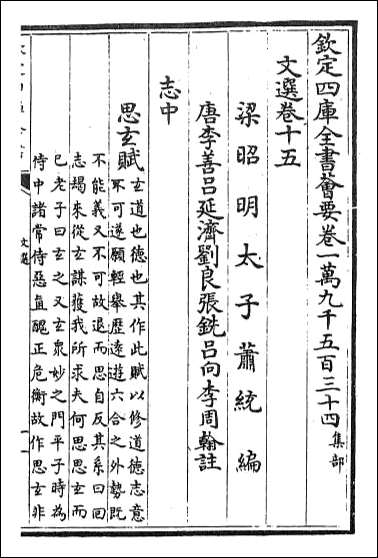 欽定四庫全書薈要卷一萬九千五百三十四 集部
文選卷十五
梁昭明太子蕭統編
唐李善呂延濟劉良張銑呂向李周翰註
志中
思玄賦 玄道也德也其作此賦以修道德志意
不可遂願輕舉歷遠遊六合之外勢既
不能義又不可故退而思自反其系曰回
志竭來從玄謀獲我所求夫何思思玄而
已老子曰玄之又玄衆妙之門平子時為
侍中諸常侍惡直醜正危衡故作思玄非
文選